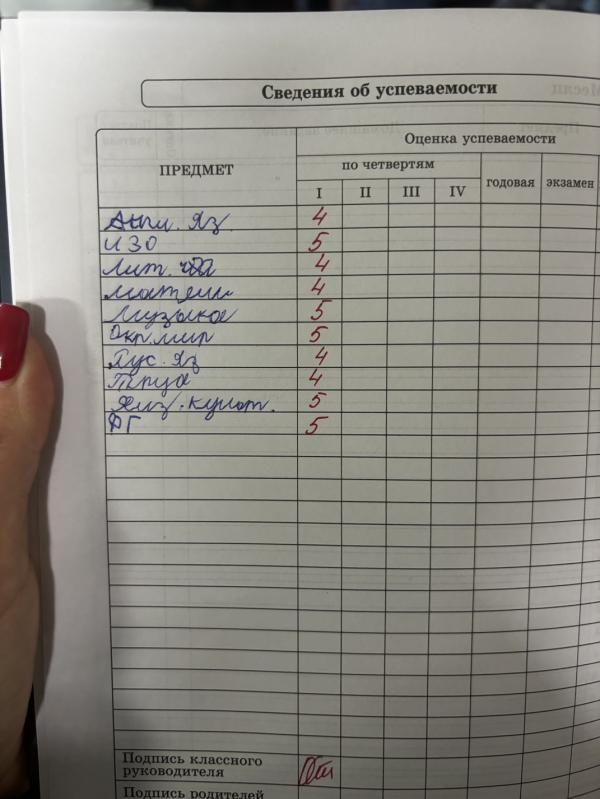 Сведения об успеваемости
ПРЕДМЕТ
Оценка успеваемости
по четвертям
I II III IV годовая экзамен
Англ. яз 4
ИЗО 5
Лит. 4
матем 4
Музыка 5
Окр. мир 5
Рус. яз 4
Труд 4
Физ. культ. 5
ФГ 5
Подпись классного
руководителя
Подпись родителей